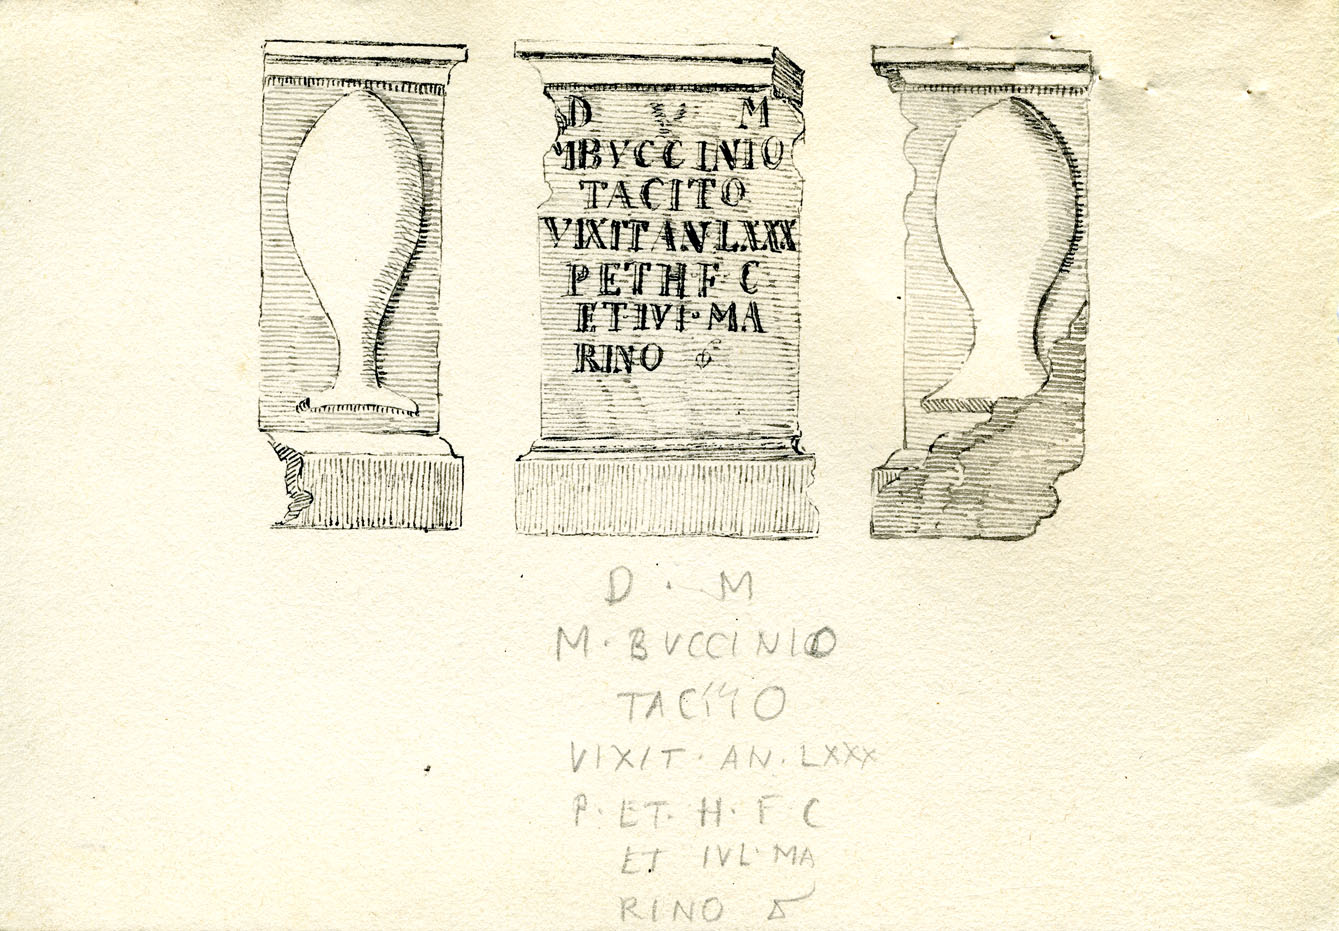 D M
MBVCCINIO
TACITO
VIXIT AN LXXX
P ET H F C
ET·IVI·MA
RINO
D · M
M · BVCCINIO
TACITO
VIXIT · AN · LXXX
P · ET · H · F · C
ET IVL · MA
RINO